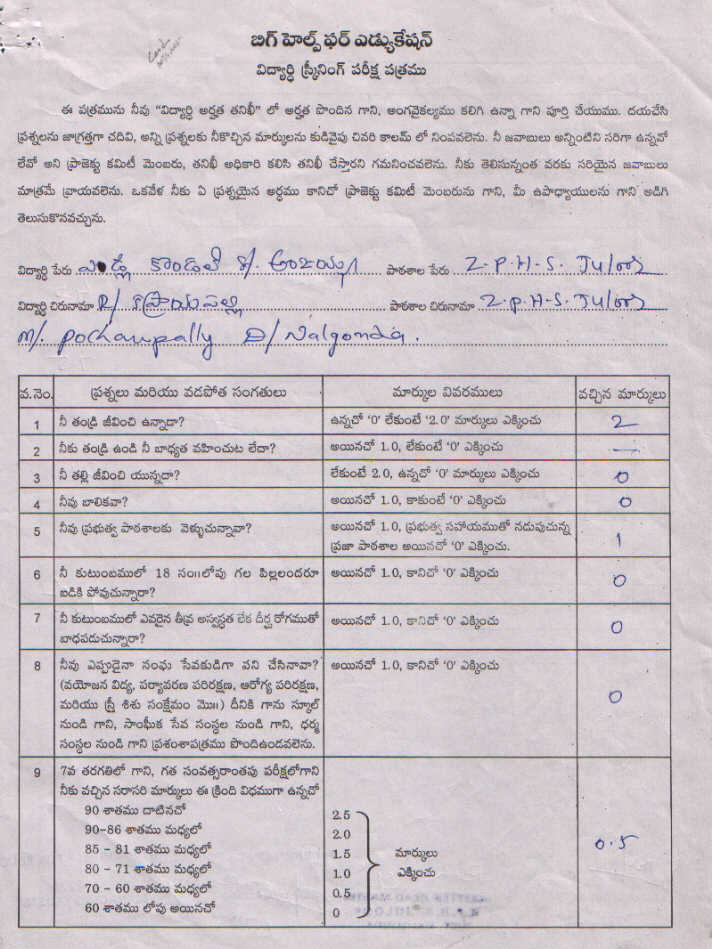 బిగ్ హెల్ప్ ఫర్ ఎడ్యుకేషన్
విద్యార్థి స్క్రీనింగ్ పరీక్ష పత్రము
ఈ పత్రమును నీవు "విద్యార్థి అర్హత తనిఖీ" లో అర్హత పొందిన గాని, అంగవైకల్యము కలిగి ఉన్నా గాని పూర్తి చేయుము. దయచేసి
ప్రశ్నలను జాగ్రత్తగా చదివి, అన్ని ప్రశ్నలకు నీకొచ్చిన మార్కులను కుడివైపు చివరి కాలమ్ లో నింపవలెను. నీ జవాబులు అన్నింటిని సరిగా ఉన్నవో
లేవో అని ప్రాజెక్టు కమిటీ మెంబరు, తనిఖీ అధికారి కలిసి తనిఖీ చేస్తారని గమనించవలెను. నీకు తెలిసున్నంత వరకు సరియైన జవాబులు
మాత్రమే వ్రాయవలెను. ఒకవేళ నీకు ఏ ప్రశ్నయైన అర్ధము కానిచో ప్రాజెక్టు కమిటీ మెంబరును గాని, మీ ఉపాధ్యాయులను గాని అడిగి
తెలుసుకొనవచ్చును.
విద్యార్థి పేరు కొండల్ S/. అంజయ్య పాఠశాల పేరు Z.P.H.S. Juloor
విద్యార్థి చిరునామా R/ పాఠశాల చిరునామా Z.P.H.S. Juloor
M/. Pochampally D/ Nalgonda.
వ.నెం. ప్రశ్నలు మరియు వడపోత సంగతులు మార్కుల వివరములు వచ్చిన మార్కులు
1 నీ తండ్రి జీవించి ఉన్నాడా? ఉన్నచో '0' లేకుంటే '2.0' మార్కులు ఎక్కించు 2
2 నీకు తండ్రి ఉండి నీ బాధ్యత వహించుట లేదా? అయినచో 1.0, లేకుంటే '0' ఎక్కించు —
3 నీ తల్లి జీవించి యున్నదా? లేకుంటే 2.0, ఉన్నచో '0' మార్కులు ఎక్కించు 0
4 నీవు బాలికవా? అయినచో 1.0, కాకుంటే '0' ఎక్కించు 0
5 నీవు ప్రభుత్వ పాఠశాలకు వెళ్ళుచున్నావా? అయినచో 1.0, ప్రభుత్వ సహాయముతో నడుపుచున్న 1
ప్రజా పాఠశాల అయినచో '0' ఎక్కించు.
6 నీ కుటుంబములో 18 సం॥లోపు గల పిల్లలందరూ అయినచో 1.0, కానిచో '0' ఎక్కించు 0
బడికి పోవుచున్నారా?
7 నీ కుటుంబములో ఎవరైన తీవ్ర అస్వస్థత లేక దీర్ఘ రోగముతో అయినచో 1.0, కానిచో '0' ఎక్కించు 0
బాధపడుచున్నారా?
8 నీవు ఎప్పుడైనా సంఘ సేవకుడిగా పని చేసినావా? అయినచో 1.0, కానిచో '0' ఎక్కించు 0
(వయోజన విద్య, పర్యావరణ పరిరక్షణ, ఆరోగ్య పరిరక్షణ,
మరియు స్త్రీ శిశు సంక్షేమం మొ॥) దీనికి గాను స్కూల్
నుండి గాని, సాంఘీక సేవ సంస్థల నుండి గాని, ధర్మ
సంస్థల నుండి గాని ప్రశంశాపత్రము పొందిఉండవలెను.
9 7వ తరగతిలో గాని, గత సంవత్సరాంతపు పరీక్షలోగాని
నీకు వచ్చిన సరాసరి మార్కులు ఈ క్రింది విధముగా ఉన్నచో
90 శాతము దాటినచో 2.5
90-86 శాతము మధ్యలో 2.0
85 - 81 శాతము మధ్యలో 1.5 మార్కులు 0.5
80 - 71 శాతము మధ్యలో 1.0 ఎక్కించు
70 - 60 శాతము మధ్యలో 0.5
60 శాతము లోపు అయినచో 0